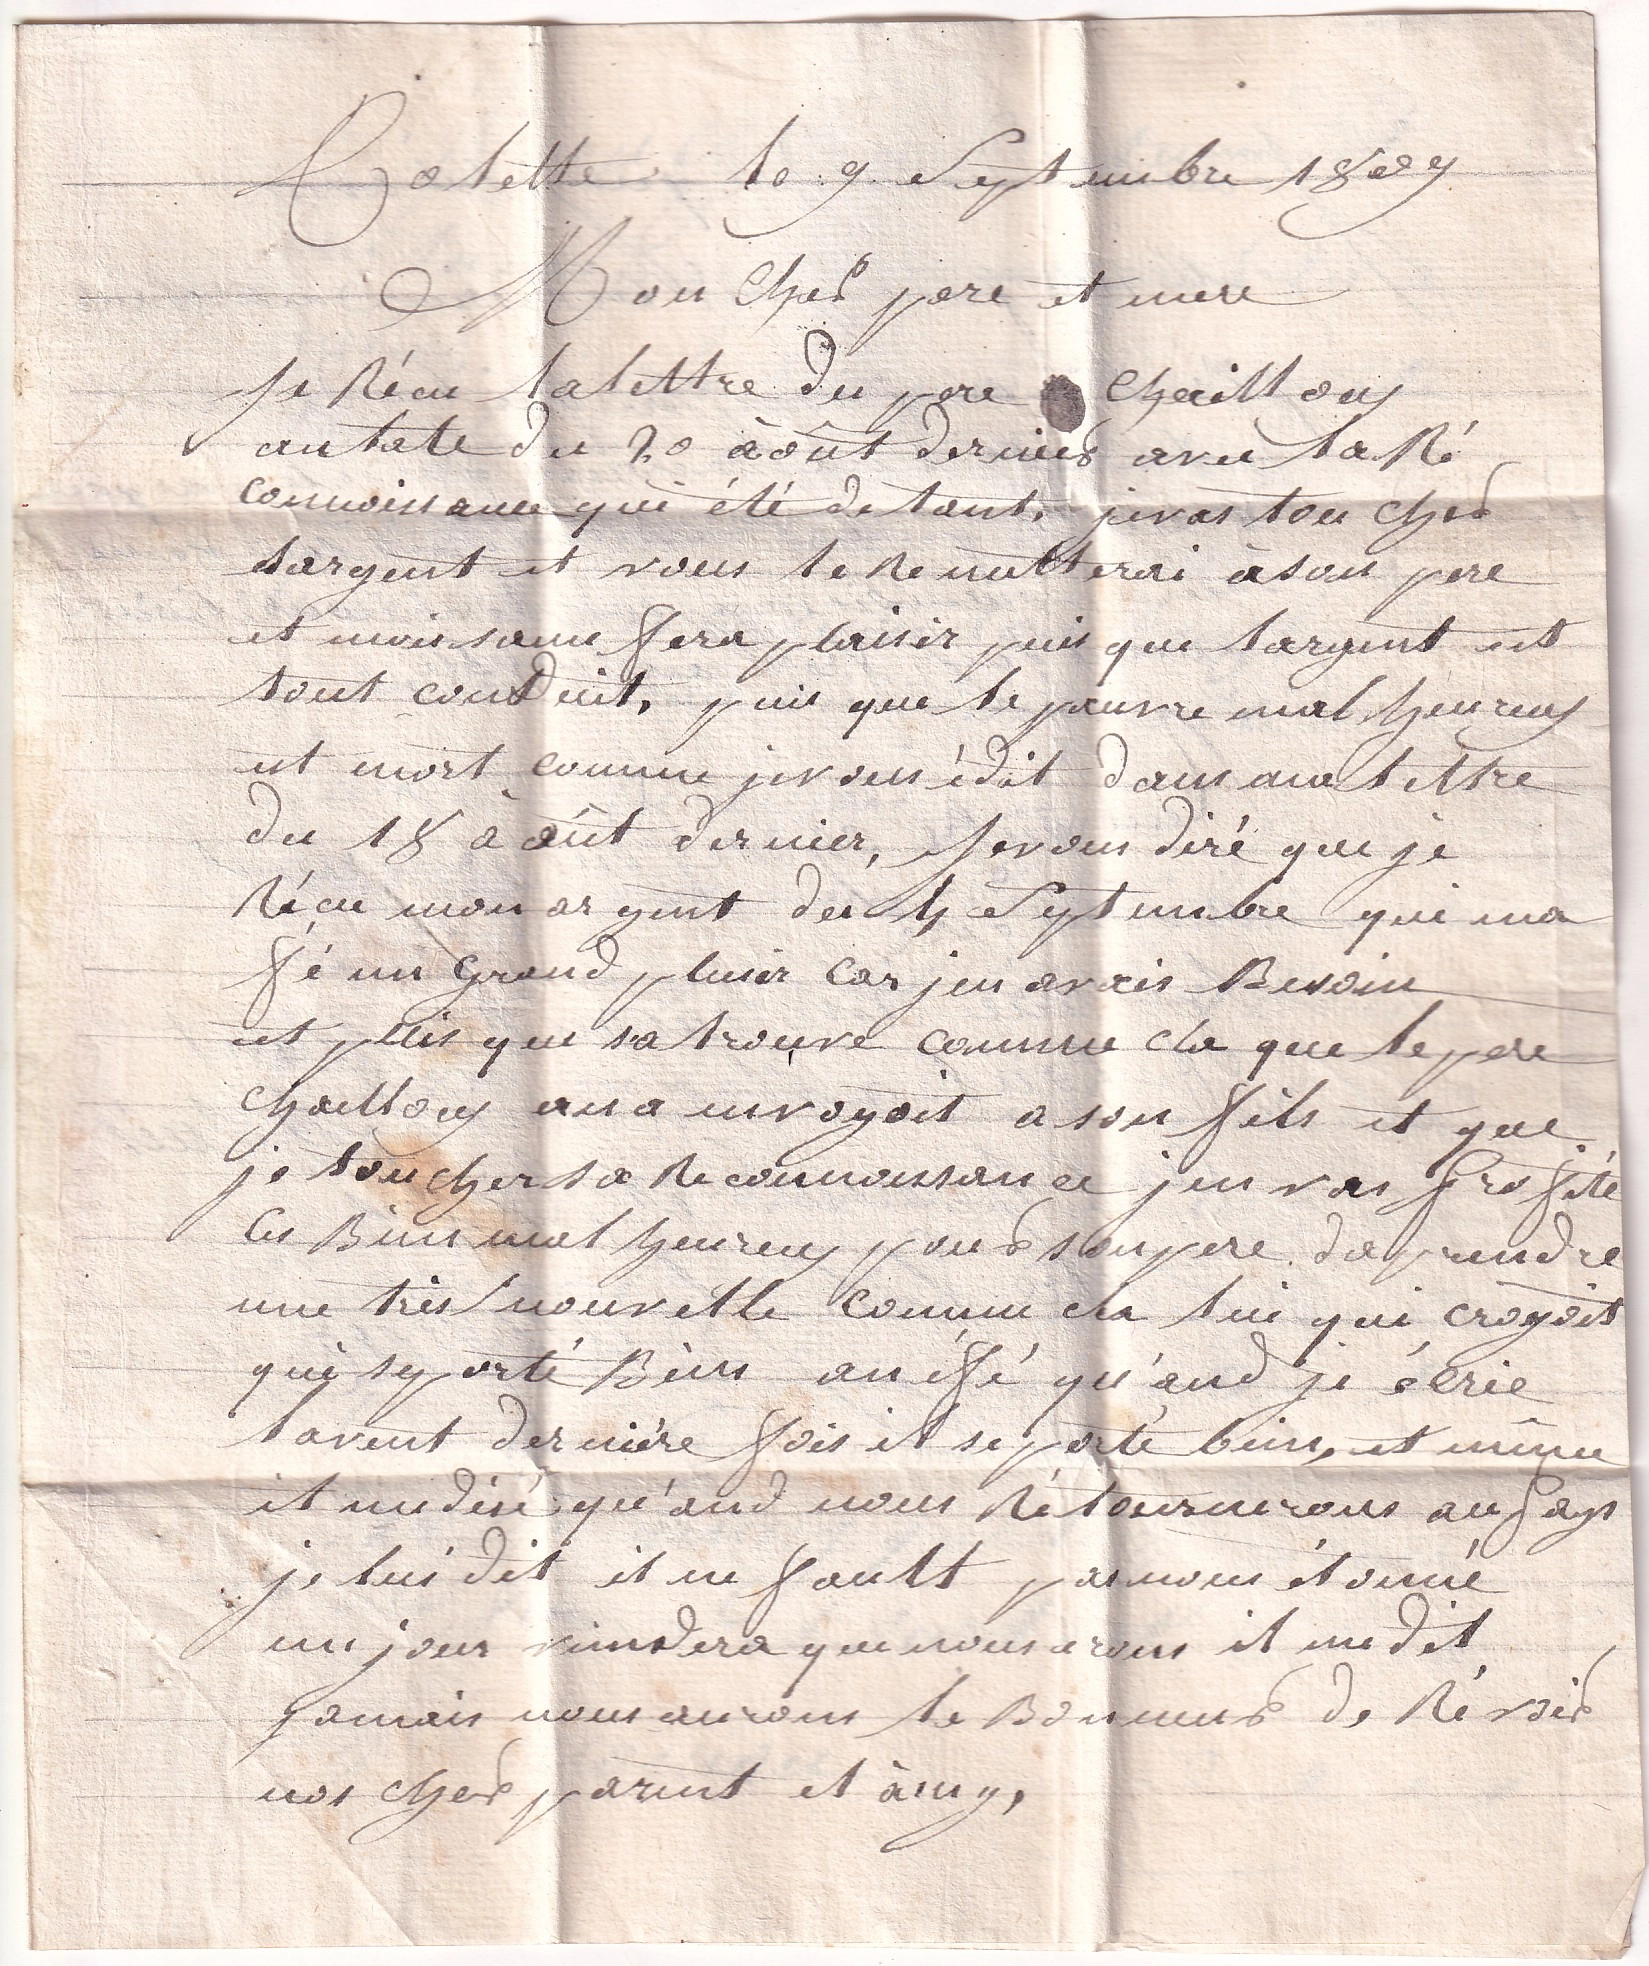 Colette le 9 Septembre 1809
Mon Cher pere et mere
Je Récu la lettre du pere Chaillouy
au date du 20 àoût dernier avec la Ré
connoissance qui été detant, jevas toucher
largent et vous le Remettterai àson pere
et mois same fera plaisir puis que largent est
tout conduit, puis que le pauvre mal heureux
est mort comme jevous édit dans ma lettre
du 18 àoût dernier, Je vous diré que je
Récu mon argent du 4 Septembre qui ma
fé un Grand plesir car jen avais Besoin
et puis que sa trouve comme cla que le pere
chaillouy ana envoyoit a son fils et que
je toucher sa Reconnoissance jen vas profité
Ces Bien mal heureux pour son pere daprendre
une tris nouvelle comme cla lui qui croyoit
qui se porté Bien an éffé qu'and je écrie
lavent derniére fois il se porté bien, et même
il me disé qu'and nous Rétournerons au pays
je lui dit il ne fautt pas nous étonné
un jour viendera que nous irons il me dit
jamais nous aurons le Bonneur de Révoir
nos cher parent et àmy,